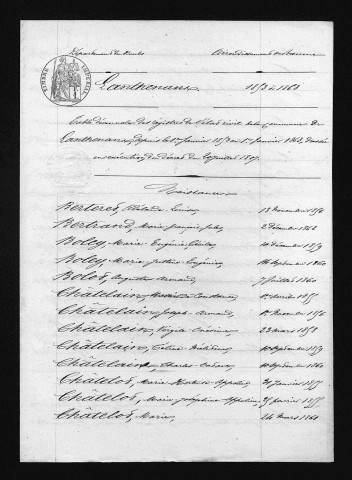 Département du Doubs
Arrondissement de Baume
Lanthenans 1853 à 1860
Table décennale des registres de l'état civil de la commune de
Lanthenans, depuis le 1er Janvier 1853 au 1er Janvier 1860, dressée
en exécution du décret du 20 juillet 1807.
Naissances
Berterod, Louise, 13 Novembre 1856
Bertrand, Marie François Jules, 2 Décembre 1860
Boley, Marie Eugénie 10 Décembre 1859
Boley, Marie Justine Eugénie, 16 Septembre 1860
Bolot, Auguste Armand, 7 Juillet 1860
Châtelain, Constance, 1855
Châtelain, Joseph Armand, 1856
Châtelain, Virgile 23 mars 1858
Châtelain, Céline 1859
Châtelain, Charles 1860
Châtelot, Marie 20 Janvier 1855
Châtelot, Marie Joséphine 25 février 1855
Châtelot, Marie, 24 mars 1860